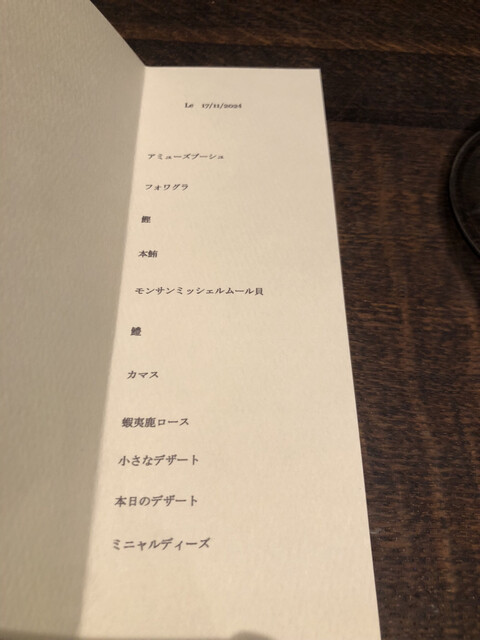 Le 17/11/2024
アミューズブーシュ
フォワグラ
鰹
本鮪
モンサンミッシェルムール貝
カマス
蝦夷鹿ロース
小さなデザート
本日のデザート
ミニャルディーズ